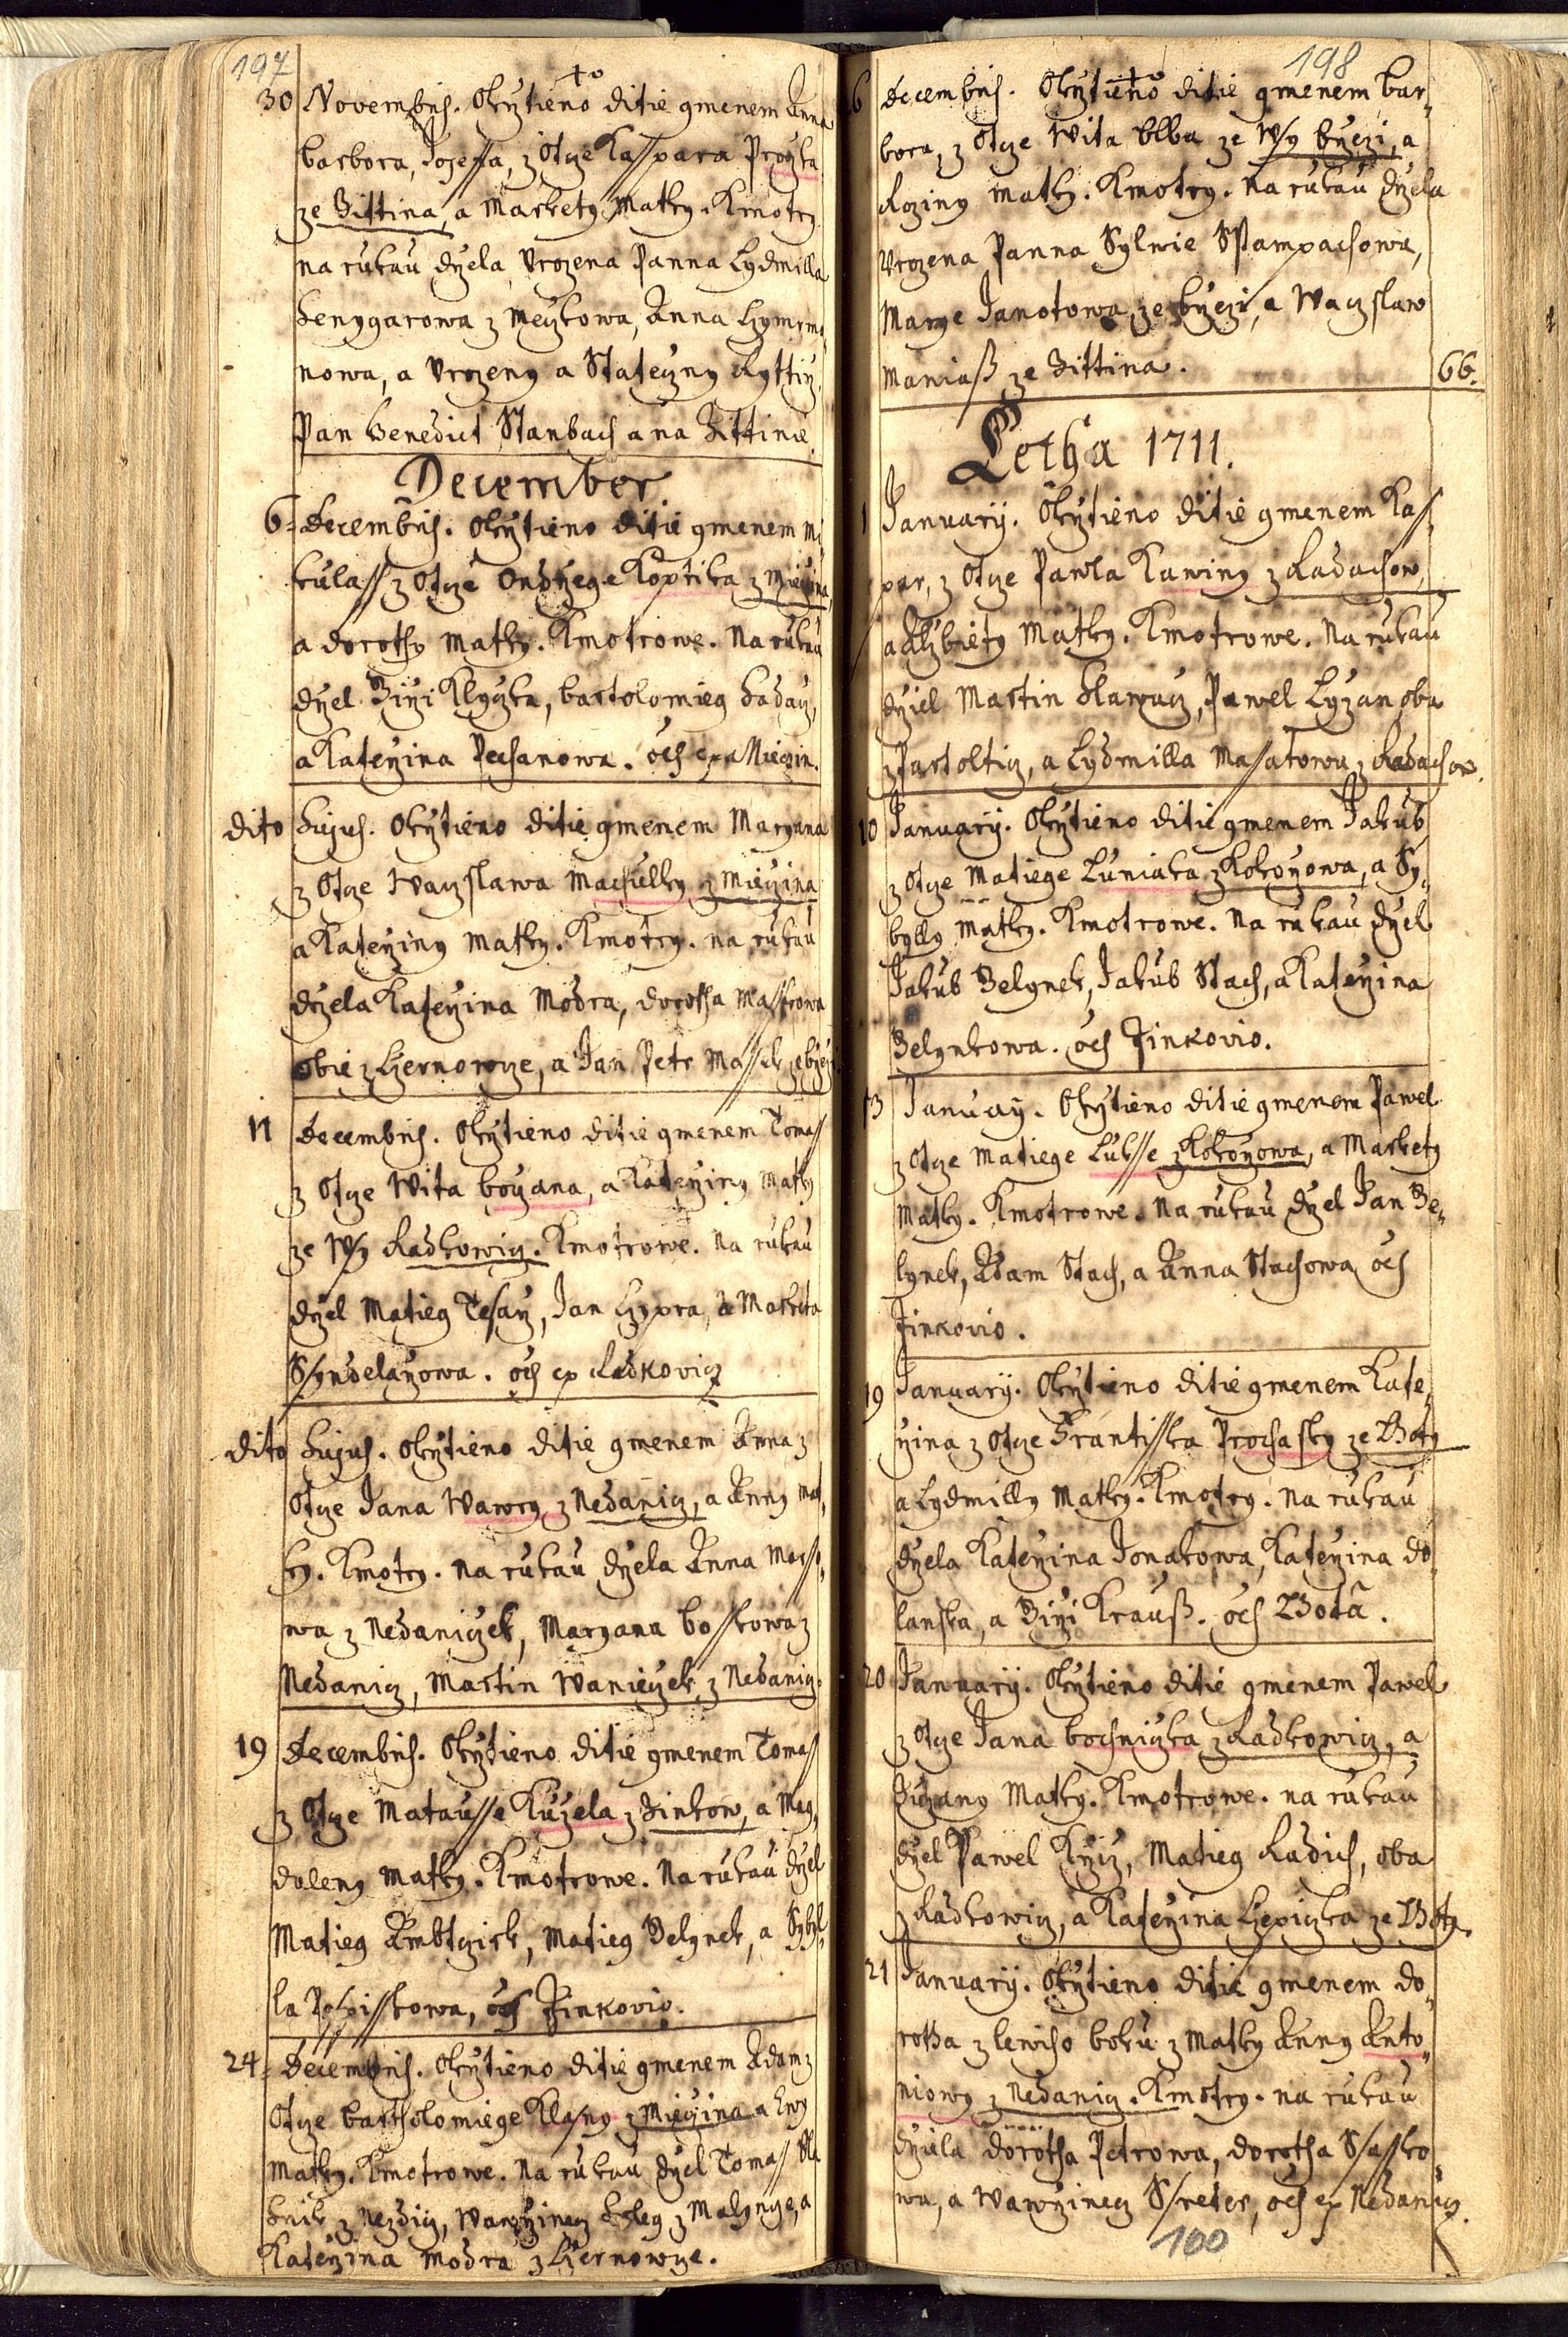 197
30 Novembris. Okrztieno ditie gmenem Anna
barbora, Jozeffa, z Otcze Kasspara Progka
ze Zittina, a Markety Matky. Kmotry
na rukau drzela Vrozena Panna Lydmilla
z Meczkowa, Anna
nowa, a Vrozeny a Stateczny Ryttirz
Pan Benedict Stanbach a na Zittinie.
December.
6 Decembris. Okrztieno ditie gmenem Mi
kulass z Otcze Ondrzege Koptika z Mieczina,
a dorothy Matky. Kmotrowe. Na rukau
drzel Girzi Klyczka, bartolomieg Hadacz,
a Katerzina Pechanowa. och ex Mieczin.
dito hujus. Okrztieno ditie gmenem Maryana
z Otcze Waczslawa Machulky z Mieczina
a Katerziny Matky. Kmotry. na rukau
drzela Katerzina Modra, dorotha Masskowa
obie z Czernowcze, a Jan Petr Massek ze bzezi
11 Decembris. Okrztieno ditie gmenem Tomass
z Otcze Wita boyana, a Katerziny Matky
ze Wsy Radkowicz. Kmotrowe. Na rukau
drzel Matieg Tesarz, Jan Czypra, a Marketa
Ssyndelarzowa. och ex Radkovicz
dito hujus. Okrztieno ditie gmenem Anna z
Otcze Jana Wawry z Nedanicz, a Anny mat,
ky. Kmotry. na rukau drzela Anna Marsso,
wa z Nedaniczek, Maryana bosskowa z
Nedanicz, Martin Wanieczek z Nedanicz.
19 Decembris. Okrztieno ditie gmenem Tomass
z Otcze Matausse Kuzela z Zinkow, a Mag,
daleny Matky. Kmotrowe. Na rukau drzel
Matieg Ambtczisk, Matieg Belynek, a Sybyl
la, och Zinkovio.
24 Decembris. Okrztieno ditie gmenem Adam z
Otcze bartholomiege Klasny z Mieczina a Ewy
Matky. Kmotrowe. Na rukau drzel Tomass
z Nezdicz, Wawrzinecz z Malyncze, a
Katerzina Modra z Czernowcze.
198
6 Decembris. Okrztieno ditie gmenem bar,
bora, z Otcze Wita blba ze Wsy brzezi, a
Roziny Matky. Kmotry. Na rukau drzela
Vrozena Panna Sylwie Sstampachowa,
Marye Janotowa ze brzezi, a Waczslaw
Maniass ze Zittina. 66.
Letha 1711.
1 January. Okrztieno ditie gmenem Kas,
par, z Otcze Pawla Kawiny z Radachow,
a Alzbiety Matky. Kmotrowe. Na rukau
drziel Martin Hlawacz, Pawel Lyzan oba
z Partolticz, a Lydmilla Masatowa z Radachow.
10 January. Okrztieno ditie gmenem Jakub,
z Otcze Matiege Luniaka z Kokorzowa, a Sy,
bylly Matky. Kmotrowe. Na rukau drzel
Jakub Belynek, Jakub Stach, a Katerzina
Belynkowa. och Zinkovio.
13 January. Okrztieno ditie gmenem Pawel
z Otcze Matiege Luksse z Kokorzowa, a Markety
Matky. Kmotrowe. Na rukau drzel Jan Be,
lynek, Adam Stach, a Anna Stachowa och
Zinkovio.
19 January. Okrztieno ditie gmenem Kate,
rzina z Otcze Frantisska Prochasky ze Lhoty
a Lydmilly Matky. Kmotry. Na rukau
drzela Katerzina Jonakowa, Katerzina do
lanska, a Girzi Krauss. och Lhota.
20 January. Okrztieno ditie gmenem Pawel
z Otcze Jana bochniczka z Radkowicz, a
Zuzany Matky. Kmotrowe. na rukau
drzel Pawel Krziz, Matieg Radich, oba
z Radkowicz, a Katerzina Czepiczka ze Lhoty.
21 January. Okrztieno ditie gmenem do,
rotha z lewiho boku z Matky Anny Anto,
niowy z Nedanicz. Kmotry. na rukau
drziela dorotha Petrowa, dorotha Ssassko
wa, a Wawrzinecz Ssreter, och ex Nedanicz.
100